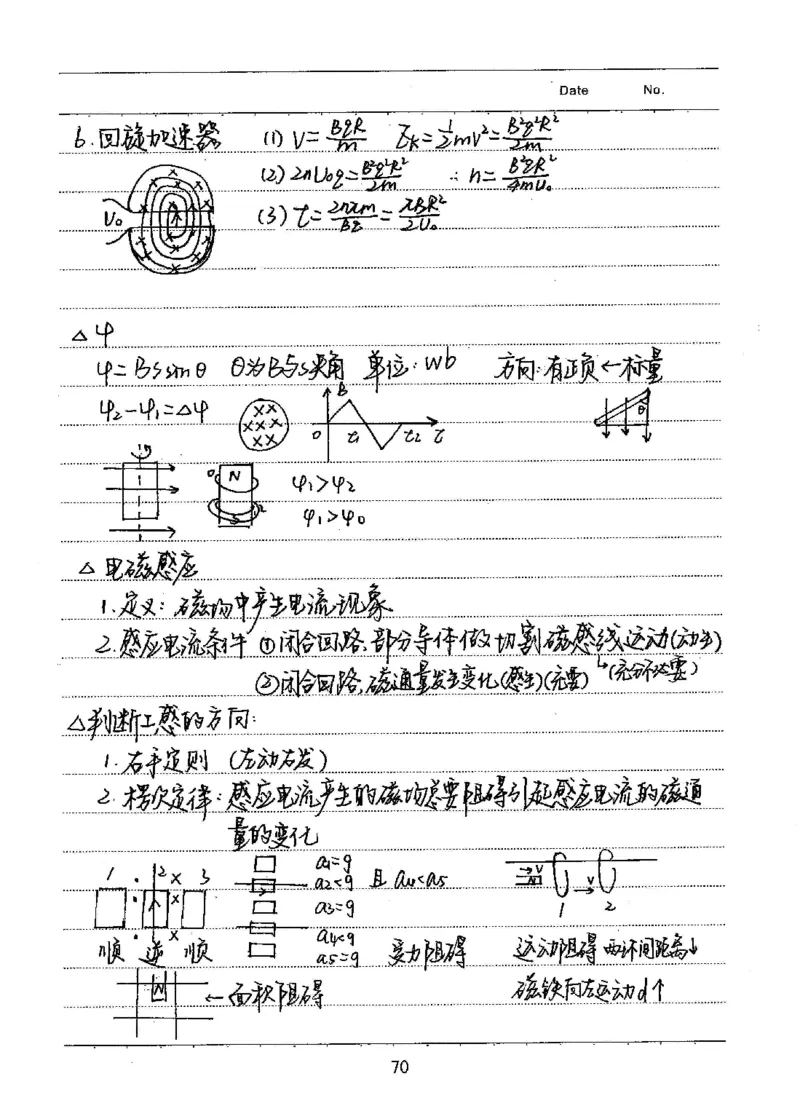 Date No.
6.回旋加速器 (1) V=BqR/m Ek=½mv²=B²q²R²/2m
(2) 2nU₀q=B²q²R²/2m ∴n=B²qR²/4mU₀
U₀ (3) t=2nπm/Bq=πBR²/2U₀
△φ
φ=BSsinθ θ为B与S夹角 单位:wb 方向:有正负←标量
φ₂-φ₁=△φ B 0 t₁ t₂ t θ
0 N φ₁>φ₂
S 2 φ₁>φ₀
△电磁感应
1.定义:磁场中产生电流现象
2.感应电流条件 ①闭合回路,部分导体做切割磁感线运动(动生)
②闭合回路,磁通量发生变化(感生)(充要) ↳(充分不必要)
△判断I感的方向:
1.右手定则 (左动右发)
2.楞次定律:感应电流产生的磁场总要阻碍引起感应电流的磁通
量的变化
1 2 3 a₁=g
a₂<g 且a₄<a₅ V N V
a₃=g 1 2
a₄<g
顺 逆 顺 a₅=g 受力阻碍 运动阻碍 两环间距离↓
N ←面积阻碍 磁铁向左运动d↑
70